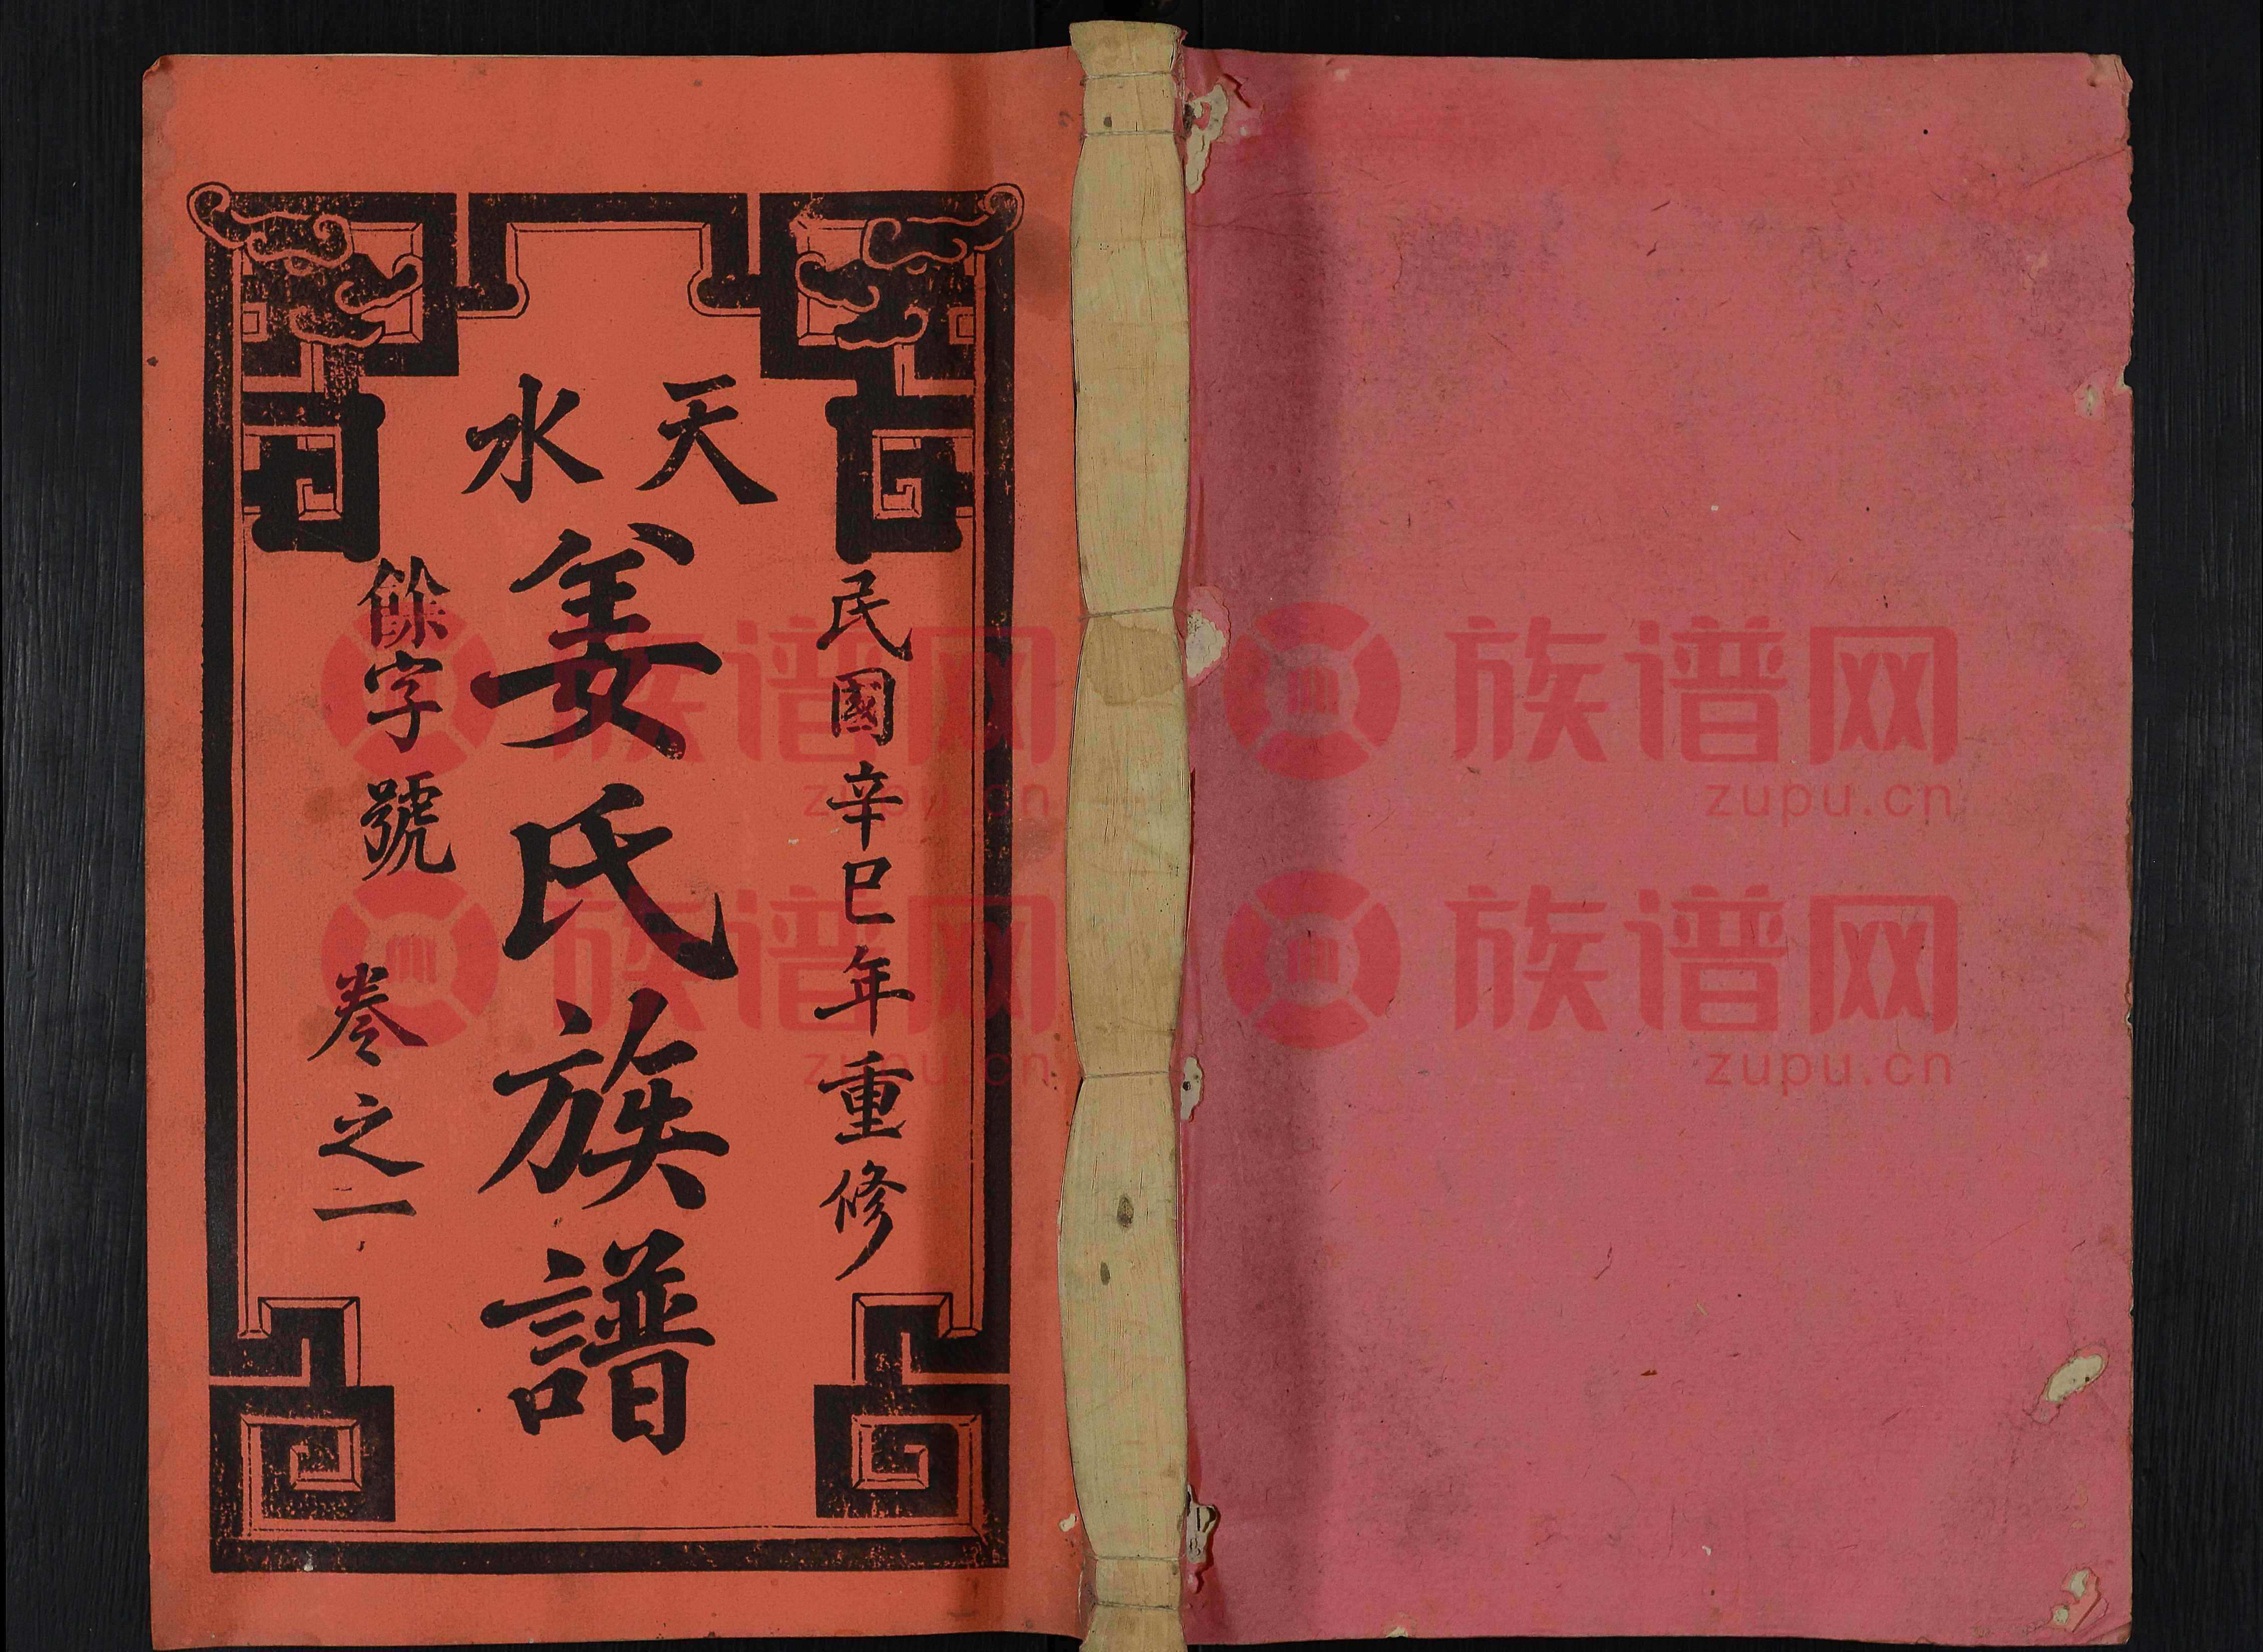 民國辛巳年重修
天水
姜氏族譜
餘字號 卷之一
族谱网
zupu.cn
族谱网
zupu.cn
族谱网
zupu.cn
族谱网
zupu.cn